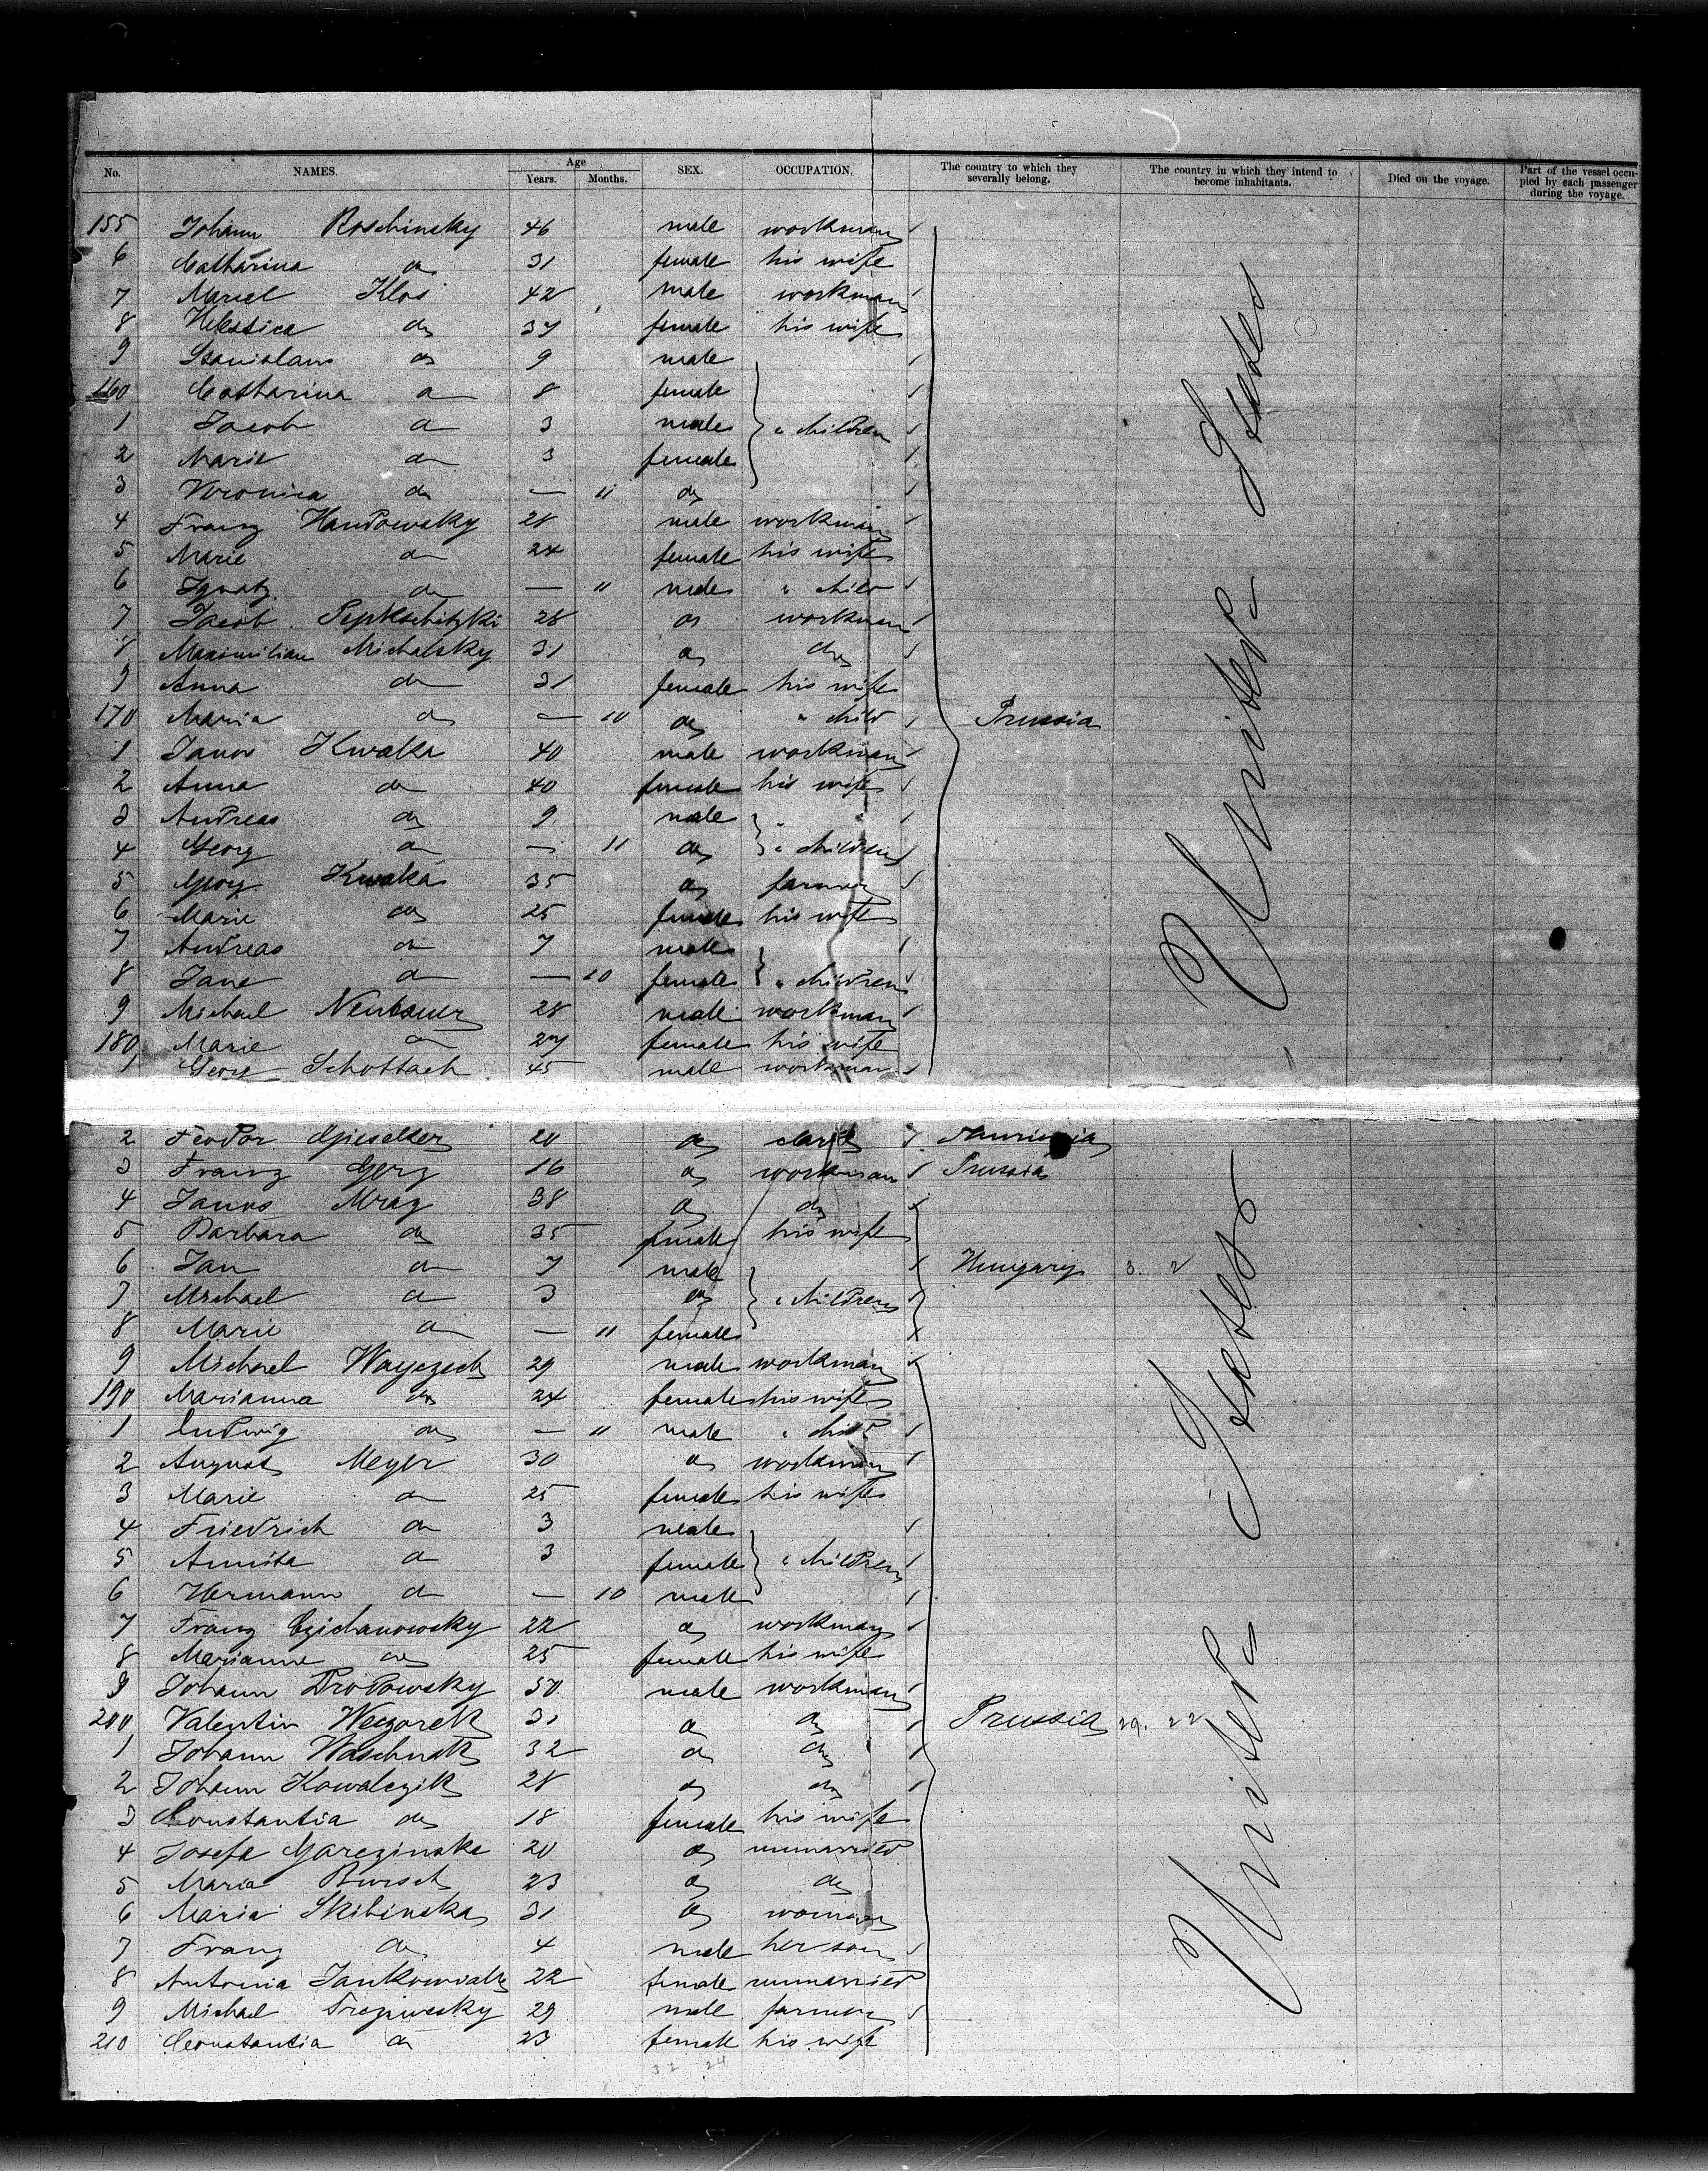 No. NAMES. Age Years. Months. SEX. OCCUPATION. The country to which they severally belong. The country in which they intend to become inhabitants. Died on the voyage. Part of the vessel occupied by each passenger during the voyage.
155 Johann Roschinsky 46 male workman
6 Catharina do 31 female his wife
7 Klos 42 male workman
8 do 37 female his wife
9 Stanislaus do 9 male
160 Catharina do 8 female
1 Jacob do 3 male " children
2 Marie do 3 female
3 Veronica do — 11 do
4 Franz Handowsky 28 male workman
5 Marie do 24 female his wife
6 Ignatz do — 11 male " child
7 Jacob 28 do workman
8 Maximilian Michalsky 31 do do
9 Anna do 31 female his wife
170 Maria do — 10 do " child Prussia
1 Janos Kwaka 40 male workman
2 Anna do 40 female his wife
3 Andreas do 9 male "
4 Georg do — 11 do " children
5 Georg Kwaka 35 do farmer
6 Marie do 25 female his wife
7 Andreas do 7 male
8 Jane do — 10 female " children
9 Michael Neubauer 28 male workman
180 Marie do 27 female his wife
1 Georg Schottach 45 male workman
United States
2 Feodor Gieselter 20 do clark
3 Franz Gerz 16 do workman Prussia
4 Janos Mraz 38 do do
5 Barbara do 35 female his wife
6 Jan do 7 male Hungary 3. 2
7 Michael do 3 do " children
8 Marie do — 11 female
9 Michael Wayczech 29 male workman
190 Marianna do 24 female his wife
1 Ludwig do — 11 male " child
2 August Meyer 30 do workman
3 Marie do 25 female his wife
4 Friedrich do 3 male
5 do 3 female " children
6 Hermann do — 10 male
7 Franz Czichanowsky 22 do workman
8 Marianne do 25 female his wife
9 Johann Drodowsky 50 male workman
200 Valentin Weczorek 31 do do Prussia 29. 22
1 Johann Waschnak 32 do do
2 Johann Kowalczik 28 do do
3 Constantia do 18 female his wife
4 Josefa Garczinska 20 do unmarried
5 Maria Bursch 23 do do
6 Maria Skibinska 31 do woman
7 Franz do 4 male her son
8 Antonia Jankowiak 22 female unmarried
9 Michael 29 male farmer
210 Constantia do 23 female his wife
United States
32 24